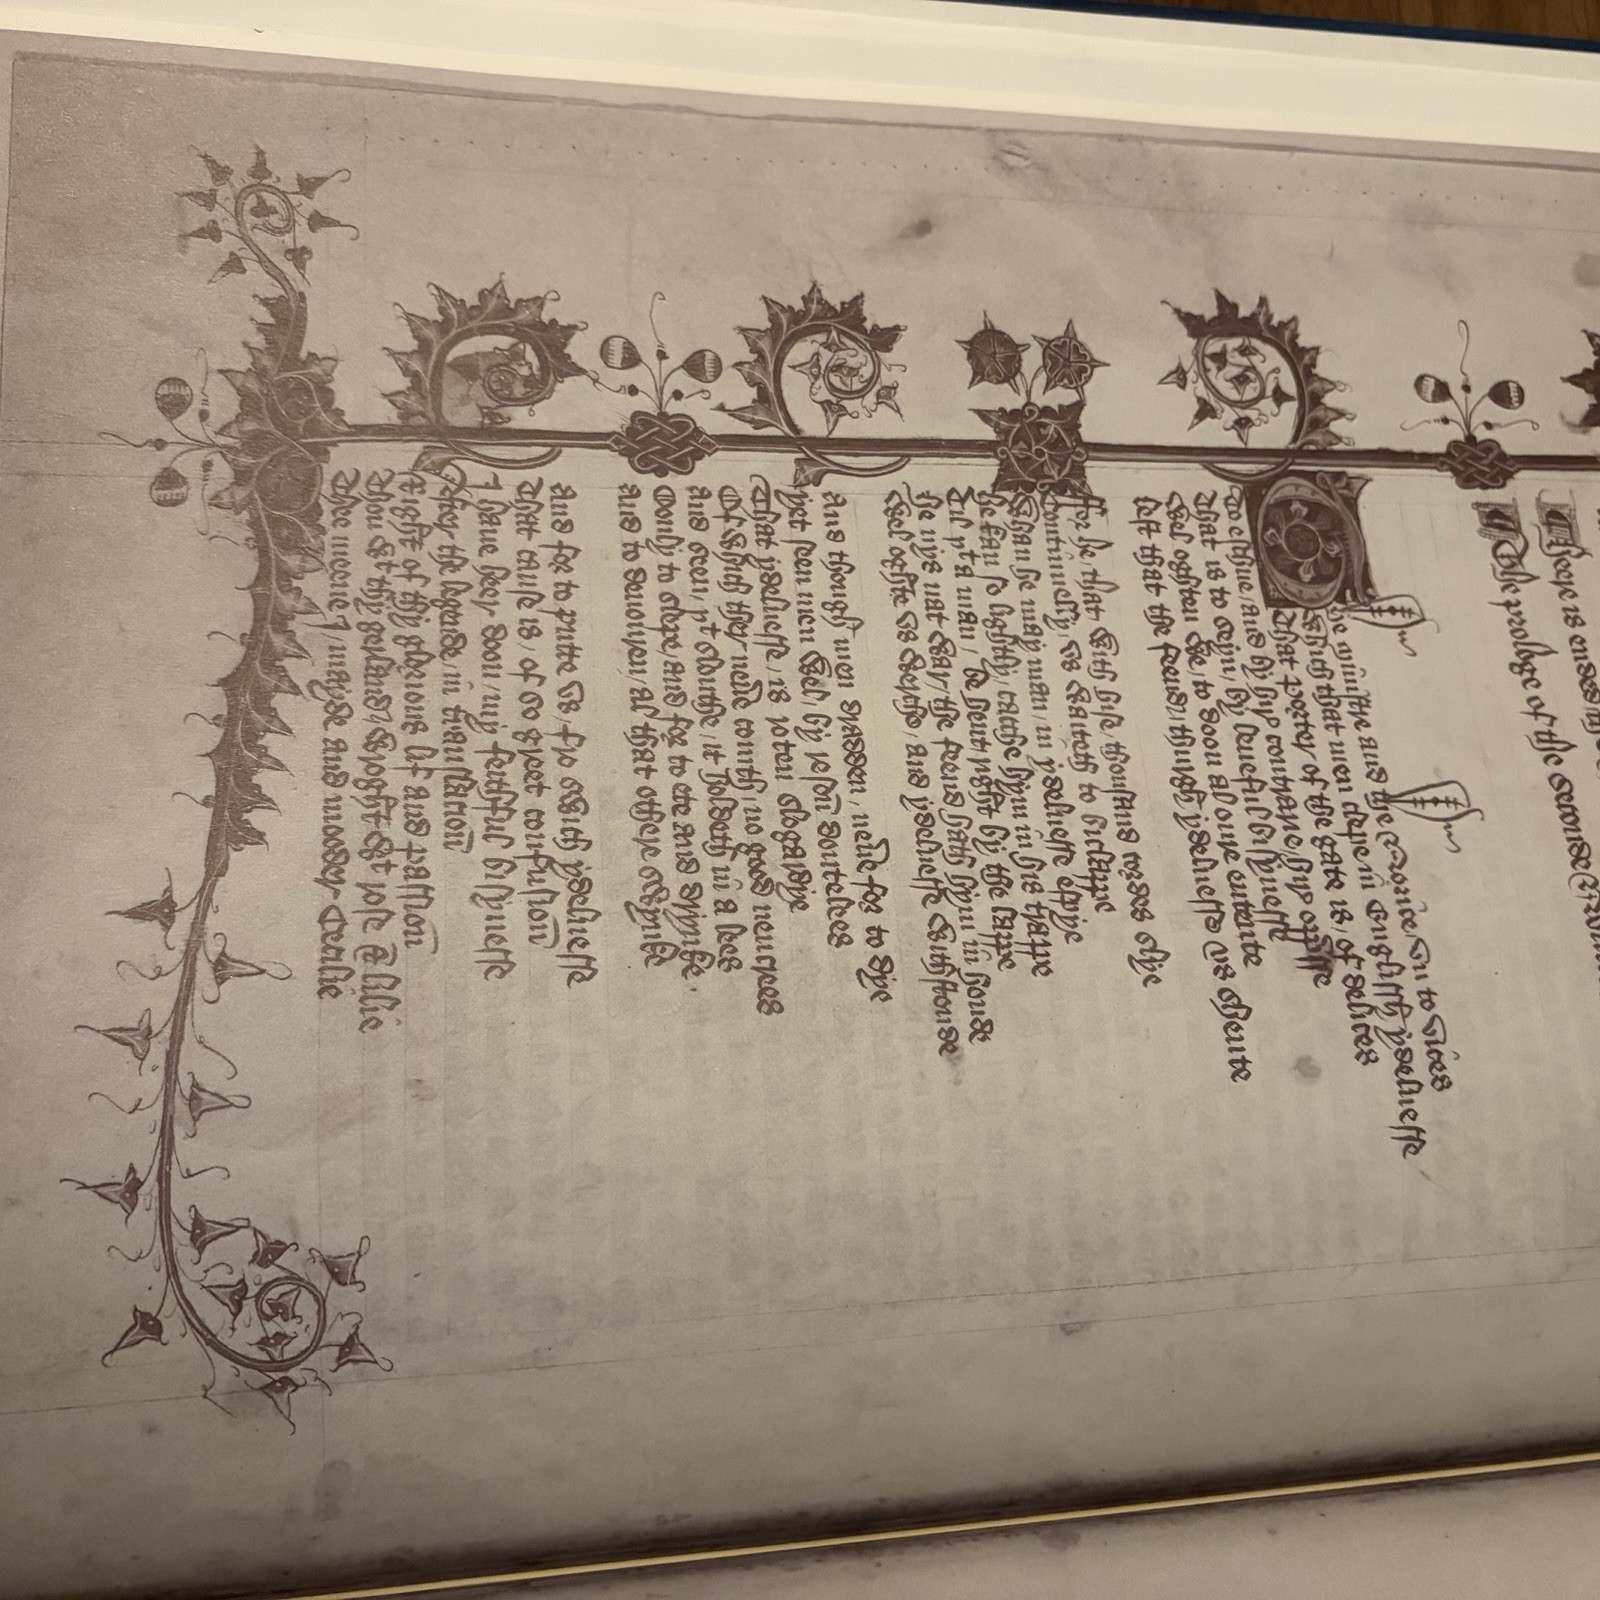 ¶ The prologe of the Seconde Nonne
The ministre and the Norice vn to vices
Which that men clepe in englissh ydelnesse
That Porter of the gate is of delices
To eschue and by hir contrarie hir oppresse
That is to seyn by leueful bisynesse
Wel oghten we to doon al oure entente
Lest that the feend thurgh ydelnesse vs hente
For he that with hise thousand cordes slye
Continuelly vs waiteth to biclappe
Whan he may man in ydelnesse espye
He kan so lightly cacche hym in his trappe
Til þt a man be hent right by the lappe
He nys nat war the feend hath hym in honde
Wel oghte vs werche and ydelnesse withstonde
And though men dradden neuer for to dye
Yet seen men wel by reson doutelees
That ydelnesse is roten slogardye
Of which ther neuer comth no good encrees
And seen þt slouthe it holdeth in a lees
Oonly to slepe and for to ete and drynke
And to deuouren al that oother swynke
And for to putte vs fro swich ydelnesse
That cause is of so greet confusioun
I haue heer doon my feithful bisynesse
After the legende in translacioun
Right of thy glorious lyf and passioun
Thou wt thy gerland wroght wt rose & lilie
Thee meene I mayde and martir Cecilie